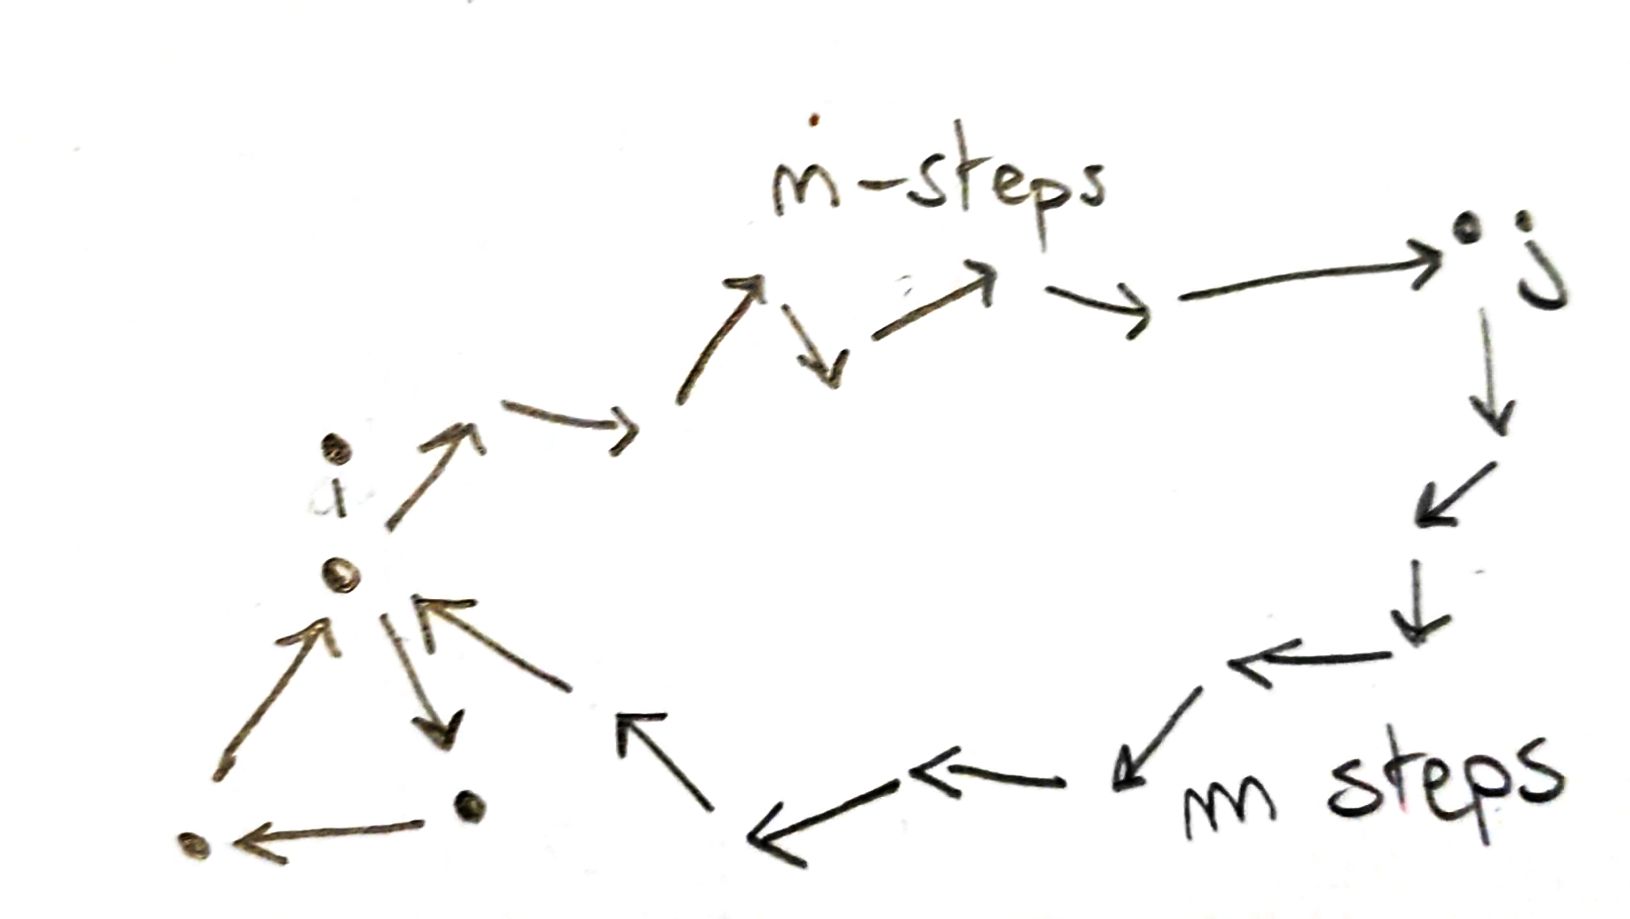 n-steps
j
i
m steps